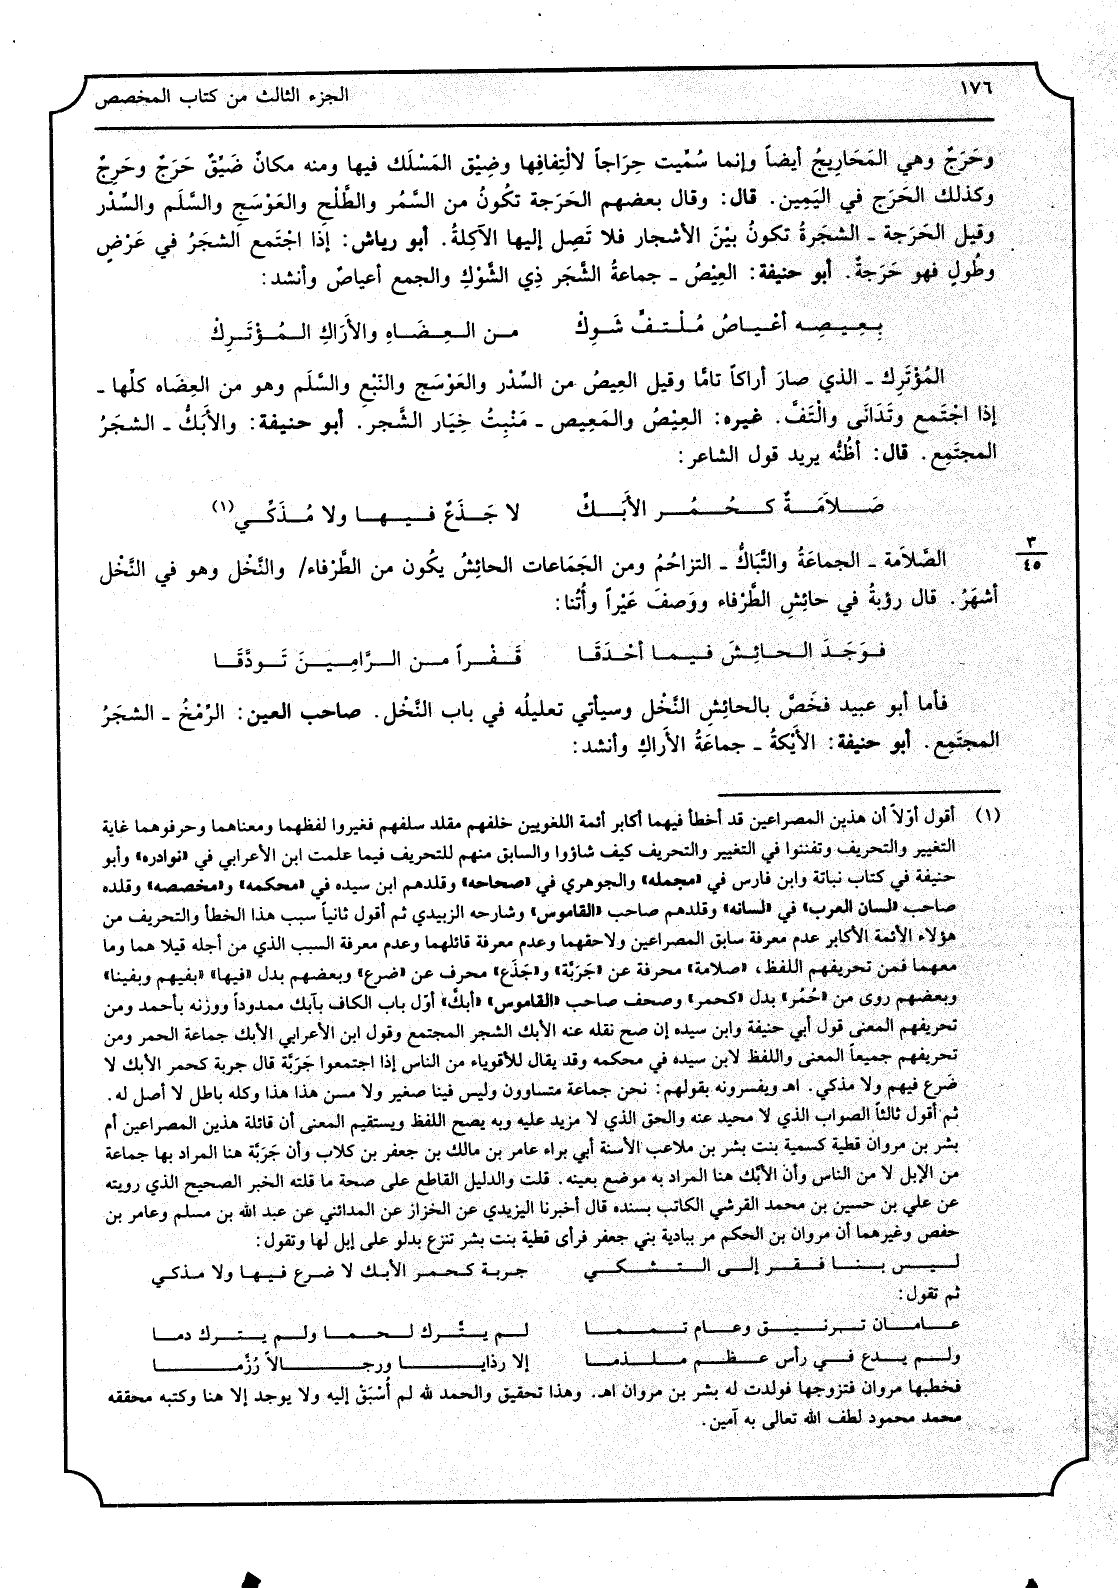 ١٧٦
الجزء الثالث من كتاب المخصص
وحَرَجٌ وهي المَحَارِيجُ أيضاً وإنما سُمِّيت حِرَاجاً لالْتِفافِها وضِيْق المَسْلَك فيها ومنه مكانٌ ضَيِّقٌ حَرَجٌ وحَرِجٌ
وكذلك الحَرَج في اليَمِين. قال: وقال بعضهم الحَرَجة تكُونُ من السَّمُر والطَّلْحِ والعَوْسَجِ والسَّلَم والسِّدْر
وقيل الحَرَجة ـ الشجَرةُ تكونُ بيْنَ الأشجار فلا تَصِل إليها الآكِلةُ. أبو رياش: إذا اجْتَمع الشجَرُ في عَرْضٍ
وطُولٍ فهو حَرَجةٌ. أبو حنيفة: العِيْصُ ـ جماعةُ الشَّجَر ذِي الشَّوْكِ والجمع أعياصٌ وأنشد:
بِعِيصِه أعْيـاصُ مُلْتـفٍّ شَوِكْ من العِضَاهِ والأَرَاكِ المُؤْتَرِكْ
المُؤْتَرِك ـ الذي صارَ أراكاً تامًّا وقيل العِيصُ من السِّدْر والعَوْسَج والنَّبْعِ والسَّلَم وهو من العِضَاه كلِّها ـ
إذا اجْتَمع وتَدَانَى والْتَفَّ. غيره: العِيْصُ والمَعِيص ـ مَنْبِتُ خِيَار الشَّجر. أبو حنيفة: والأَبَكُّ ـ الشجَرُ
المجتَمِع. قال: أظُنُّه يريد قول الشاعر:
صَلاَمَةٌ كحُمُر الأَبَكِّ لا جَذَعٌ فيها ولا مُذَكِّي(١)
٣
٤٥
الصَّلاَمة ـ الجماعَةُ والتَّبَاكُّ ـ التزاحُمُ ومن الجَمَاعات الحائِشُ يكُون من الطَّرْفاء/ والنَّخْل وهو في النَّخْل
أشهَرُ. قال رؤبةُ في حائِشِ الطَّرْفاء ووَصفَ عَيْراً وأُتُنا:
فوَجَدَ الحائِشَ فيما أحْدَقَا قَفْراً من الرَّامِينَ تَودَّقَا
فأما أبو عبيد فخَصَّ بالحائِشِ النَّخْل وسيأتي تعليلُه في باب النَّخْل. صاحب العين: الرِّمْخُ ـ الشجَرُ
المجتَمِع. أبو حنيفة: الأَيْكةُ ـ جماعَةُ الأَراكِ وأنشد:
(١) أقول أوّلاً أن هذين المصراعين قد أخطأ فيهما أكابر أئمة اللغويين خلفهم مقلد سلفهم فغيروا لفظهما ومعناهما وحرفوهما غاية
التغيير والتحريف وتفننوا في التغيير والتحريف كيف شاؤوا والسابق منهم للتحريف فيما علمت ابن الأعرابي في «نوادره» وأبو
حنيفة في كتاب نباتة وابن فارس في «مجمله» والجوهري في «صحاحه» وقلدهم ابن سيده في «محكمه» و«مخصصه» وقلده
صاحب «لسان العرب» في «لسانه» وقلدهم صاحب «القاموس» وشارحه الزبيدي ثم أقول ثانياً سبب هذا الخطأ والتحريف من
هؤلاء الأئمة الأكابر عدم معرفة سابق المصراعين ولاحقهما وعدم معرفة قائلهما وعدم معرفة السبب الذي من أجله قيلا هما وما
معهما فمن تحريفهم اللفظ، «صلامة» محرفة عن «جَرَبَّة» و«جَذَع» محرف عن «ضرع» وبعضهم بدل «فيها» «بفيهم وبفينا»
وبعضهم روى من «حُمُر» بدل «كحمر» وصحف صاحب «القاموس» «أبكَّ» أوّل باب الكاف بآبك ممدوداً ووزنه بأحمد ومن
تحريفهم المعنى قول أبي حنيفة وابن سيده إن صح نقله عنه الأبك الشجر المجتمع وقول ابن الأعرابي الأبك جماعة الحمر ومن
تحريفهم جميعاً المعنى واللفظ لابن سيده في محكمه وقد يقال للأقوياء من الناس إذا اجتمعوا جَرَبَّة قال جربة كحمر الأبك لا
ضَرع فيهم ولا مذكي. اهـ ويفسرونه بقولهم: نحن جماعة متساوون وليس فينا صغير ولا مسن هذا هذا وكله باطل لا أصل له.
ثم أقول ثالثاً الصواب الذي لا محيد عنه والحق الذي لا مزيد عليه وبه يصح اللفظ ويستقيم المعنى أن قائلة هذين المصراعين أم
بشر بن مروان قطية كسمية بنت بشر بن ملاعب الأسنة أبي براء عامر بن مالك بن جعفر بن كلاب وأن جَرَبَّة هنا المراد بها جماعة
من الإبل لا من الناس وأن الأبَّك هنا المراد به موضع بعينه. قلت والدليل القاطع على صحة ما قلته الخبر الصحيح الذي رويته
عن علي بن حسين بن محمد القرشي الكاتب بسنده قال أخبرنا اليزيدي عن الخزاز عن المدائني عن عبد الله بن مسلم وعامر بن
حفص وغيرهما أن مروان بن الحكم مر ببادية بني جعفر فرأى قطية بنت بشر تنزع بدلو على إبل لها وتقول:
ليس بنا فقر إلى التشكي جربة كحمر الأبك لا ضرع فيها ولا مذكي
ثم تقول:
عامان تبرنيق وعام تمما لم يتَّرك لحما ولم يترك دما
ولم يدع في رأس عظم ملذما إلا رذايا ورجالاً رُزَّما
فخطبها مروان فتزوجها فولدت له بشر بن مروان اهـ. وهذا تحقيق والحمد لله لم أُسْبَقْ إليه ولا يوجد إلا هنا وكتبه محققه
محمد محمود لطف الله تعالى به آمين.